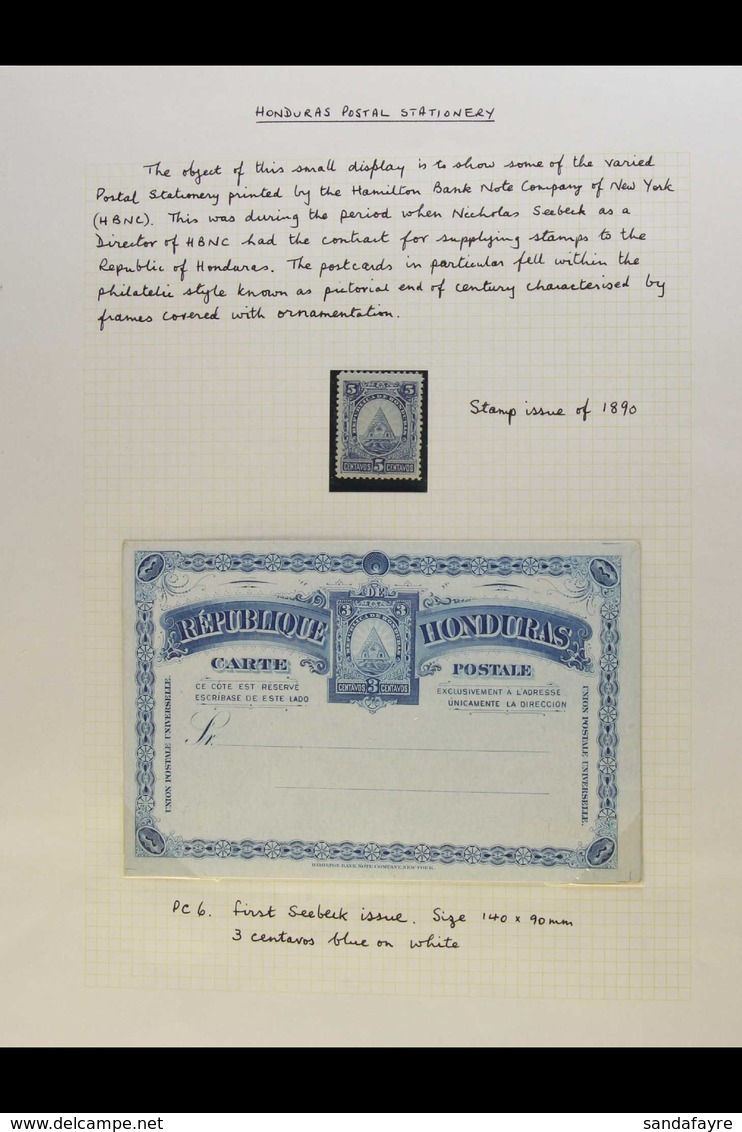 HONDURAS POSTAL STATIONERY
The object of this small display is to show some of the varied
Postal Stationery printed by the Hamilton Bank Note Company of New York
(HBNC). This was during the period when Nicholas Seebeck as a
Director of HBNC had the contract for supplying stamps to the
Republic of Honduras. The postcards in particular fell within the
philatelic style known as pictorial end of century characterised by
frames covered with ornamentation.
5 5
REPUBLICA DE HONDURAS
CENTAVOS 5 CENTAVOS
Stamp issue of 1890
DE
RÉPUBLIQUE HONDURAS
3 3
REPUBLICA DE HONDURAS
CENTAVOS 3 CENTAVOS
CARTE POSTALE
CE CÔTE EST RESERVÉ EXCLUSIVEMENT A L'ADRESSE
ESCRIBASE DE ESTE LADO ÚNICAMENTE LA DIRECCION
UNION POSTALE UNIVERSELLE.
UNION POSTALE UNIVERSELLE.
Sr.
HAMILTON BANK NOTE COMPANY, NEW YORK.
PC 6. First Seebeck issue. Size 140 x 90mm
3 centavos blue on white
www.delcampe.net sandafayre